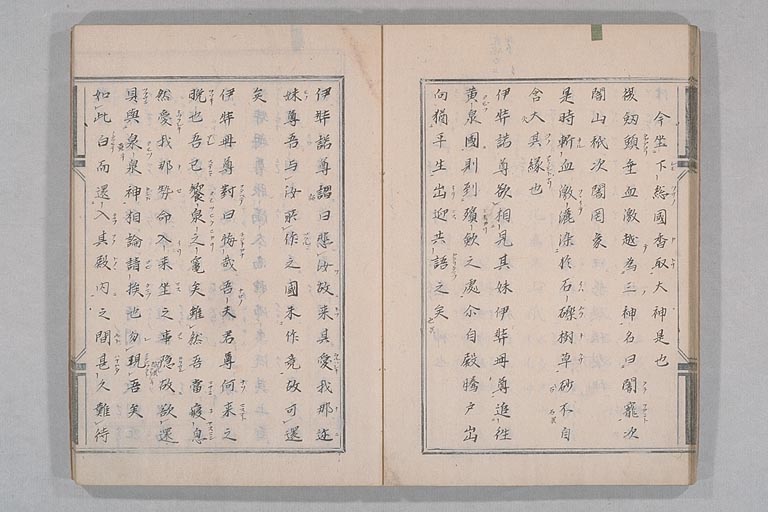 今坐下総國香取大神是也
復劔頭垂血激越為三神名曰闇龗次
闇山祇次闇罔象
是時斬血激灑染於石礫樹草砂石自
含火其縁也
伊弉諾尊欲相見其妹伊弉冉尊追往
黄泉國則到殯歛之處尒自殿騰戸出
向猶平生出迎共語之矣
伊弉諾尊謂曰悲汝故来其愛我那迩
妹尊吾与汝所作之國未作竟故可還
矣
伊弉冉尊對曰悔哉吾夫君尊何来之
晩也吾已飡泉之竈矣雖然吾當寝息
然愛我那勢命入来坐之事恐故欲還
具與泉泉神相論請挨也勿現吾矣
如此白而還入其殿内之間甚久難待